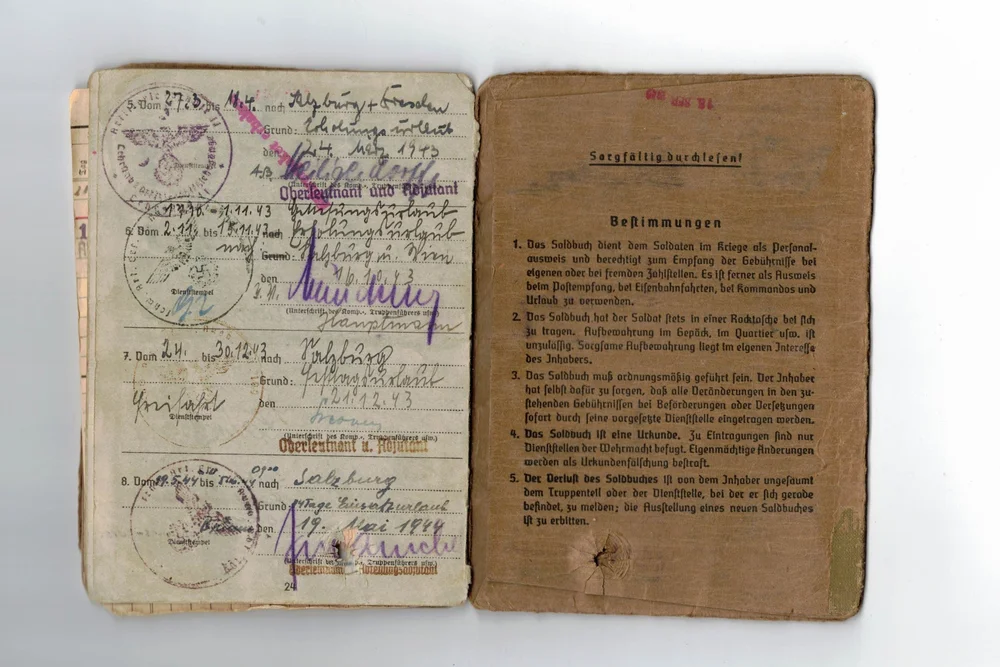 5. Vom 27.3. bis 11.4. nach Salzburg + Dresden
Grund: Erholungsurlaub
den 24. März 1943
Dienststempel
Oberleutnant und Adjutant
17.10. - 1.11.43 Genesungsurlaub
6. Vom 2.11. bis 15.11.43 nach Erholungsurlaub
nach Grund: Salzburg u. Wien
den 16.10.43
Dienststempel
(Unterschrift des Komp.-, Truppenführers usw.)
Hauptmann
7. Vom 24. bis 30.12.43 nach Salzburg
Grund:
Freifahrt den 21.12.43
Dienststempel
(Unterschrift des Komp.-, Truppenführers usw.)
Oberleutnant u. Adjutant
8. Vom 19.5.44 bis nach Salzburg
Grund: 14 Tage Einsatzurlaub
den 19. Mai 1944
Dienststempel
Oberleutnant Abteilungsadjutant
24
Sorgfältig durchlesen!
Bestimmungen
1. Das Soldbuch dient dem Soldaten im Kriege als Personal-
ausweis und berechtigt zum Empfang der Gebührnisse bei
eigenen oder bei fremden Zahlstellen. Es ist ferner als Ausweis
beim Postempfang, bei Eisenbahnfahrten, bei Kommandos und
Urlaub zu verwenden.
2. Das Soldbuch hat der Soldat stets in einer Rocktasche bei sich
zu tragen. Aufbewahrung im Gepäck, im Quartier usw. ist
unzulässig. Sorgsame Aufbewahrung liegt im eigenen Interesse
des Inhabers.
3. Das Soldbuch muß ordnungsmäßig geführt sein. Der Inhaber
hat selbst dafür zu sorgen, daß alle Veränderungen in den zu-
stehenden Gebührnissen bei Beförderungen oder Versetzungen
sofort durch seine vorgesetzte Dienststelle eingetragen werden.
4. Das Soldbuch ist eine Urkunde. Zu Eintragungen sind nur
Dienststellen der Wehrmacht befugt. Eigenmächtige Änderungen
werden als Urkundenfälschung bestraft.
5. Der Verlust des Soldbuches ist von dem Inhaber ungesäumt
dem Truppenteil oder der Dienststelle, bei der er sich gerade
befindet, zu melden; die Ausstellung eines neuen Soldbuches
ist zu erbitten.